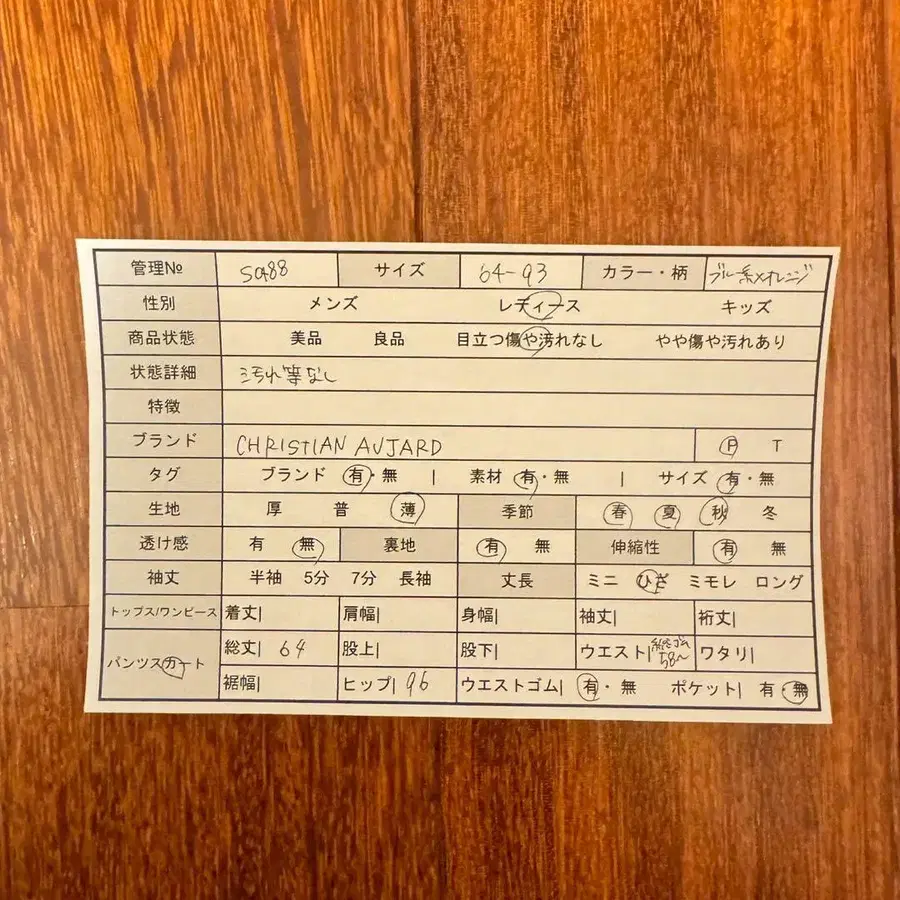 管理№ SA88 サイズ 64-93 カラー・柄 ブルー系×オレンジ
性別 メンズ レディース キッズ
商品状態 美品 良品 目立つ傷や汚れなし やや傷や汚れあり
状態詳細 汚れ等なし
特徴
ブランド CHRISTIAN AUJARD P T
タグ ブランド 有・無 | 素材 有・無 | サイズ 有・無
生地 厚 普 薄 季節 春 夏 秋 冬
透け感 有 無 裏地 有 無 伸縮性 有 無
袖丈 半袖 5分 7分 長袖 丈長 ミニ ひざ ミモレ ロング
トップス/ワンピース 着丈| 肩幅| 身幅| 袖丈| 裄丈|
パンツスカート 総丈| 64 股上| 股下| ウエスト| 総ゴム 58~ ワタリ|
裾幅| ヒップ| 96 ウエストゴム| 有・無 ポケット| 有・無